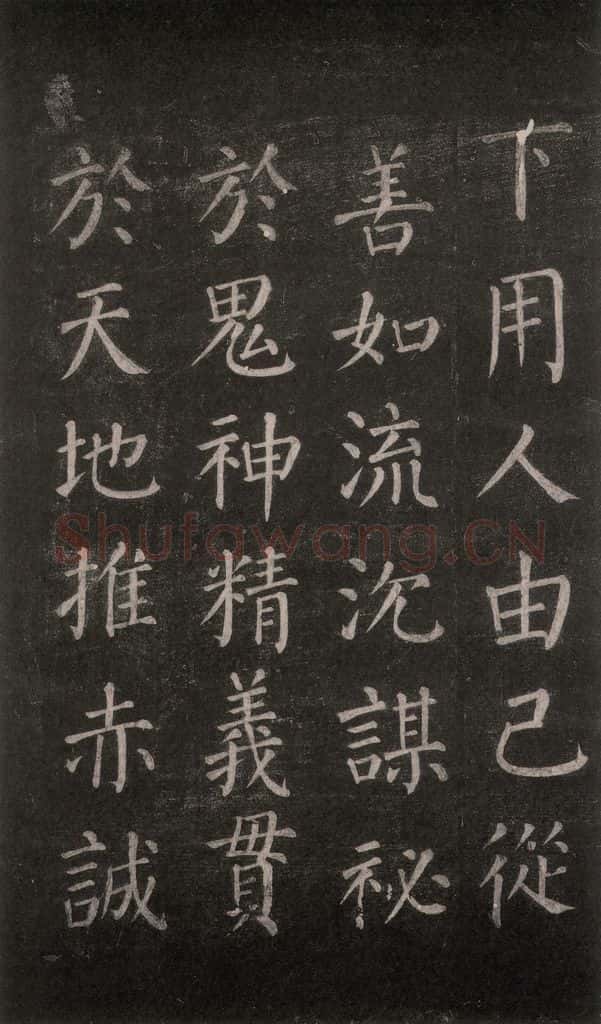 下用人由己從
善如流沉謀祕
於鬼神精義貫
於天地推赤誠
Shufawang.CN